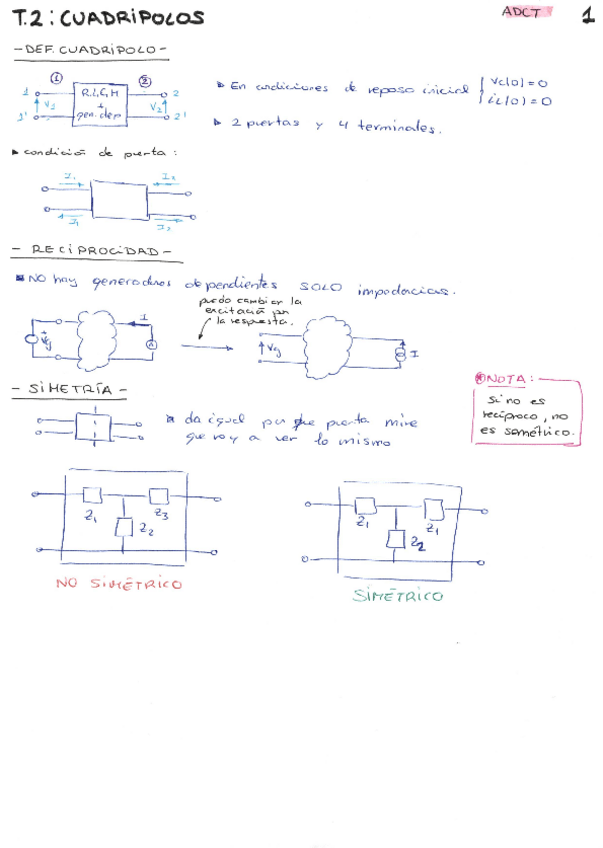 T.2: CUADRIPOLOS
ADCT 1
- DEF. CUADRIPOLO -
① ②
1 R,L,C,M 2
V1 + V2
1' gen. dep 2'
▸ En condiciones de reposo inicial { Vc(0) = 0
iL(0) = 0
▸ 2 puertas y 4 terminales.
▸ condición de puerta:
I1 I2
I1 I2
- RECIPROCIDAD -
NO hay generadores dependientes SOLO impedancias.
puedo cambiar la
excitación por
la respuesta.
+ Vg I A
Vg I
- SIMETRÍA -
da igual por que puerta mire
que voy a ver lo mismo
NOTA:
si no es
recíproco, no
es simétrico.
Z1 Z3
Z2
NO SIMÉTRICO
Z1 Z1
Z2
SIMÉTRICO